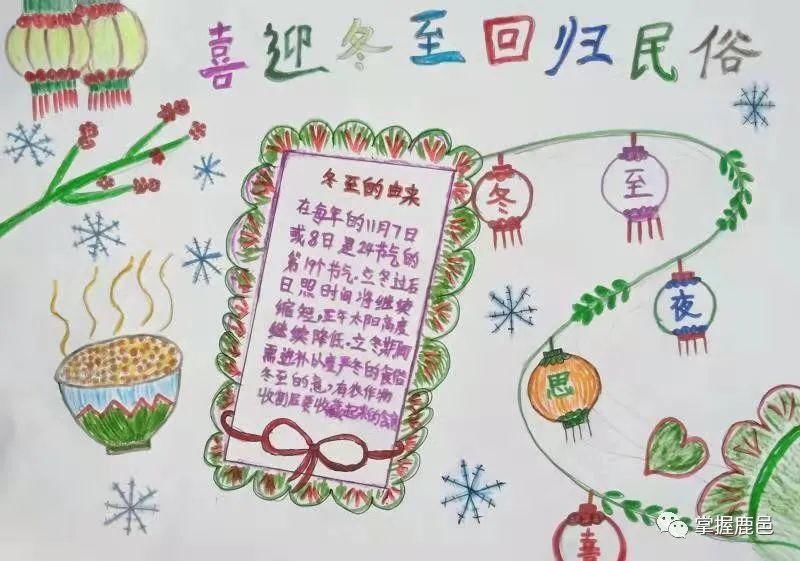 喜迎冬至回归民俗
冬至的由来
在每年的11月7日
或8日是24节气的
第19个节气.立冬过后
日照时间将继续
缩短,正午太阳高度
继续降低.立冬期间
需进补以度严冬的食俗
冬至的意,有农作物
收割后要收藏起来的含
冬
至
夜
思
喜
掌握鹿邑